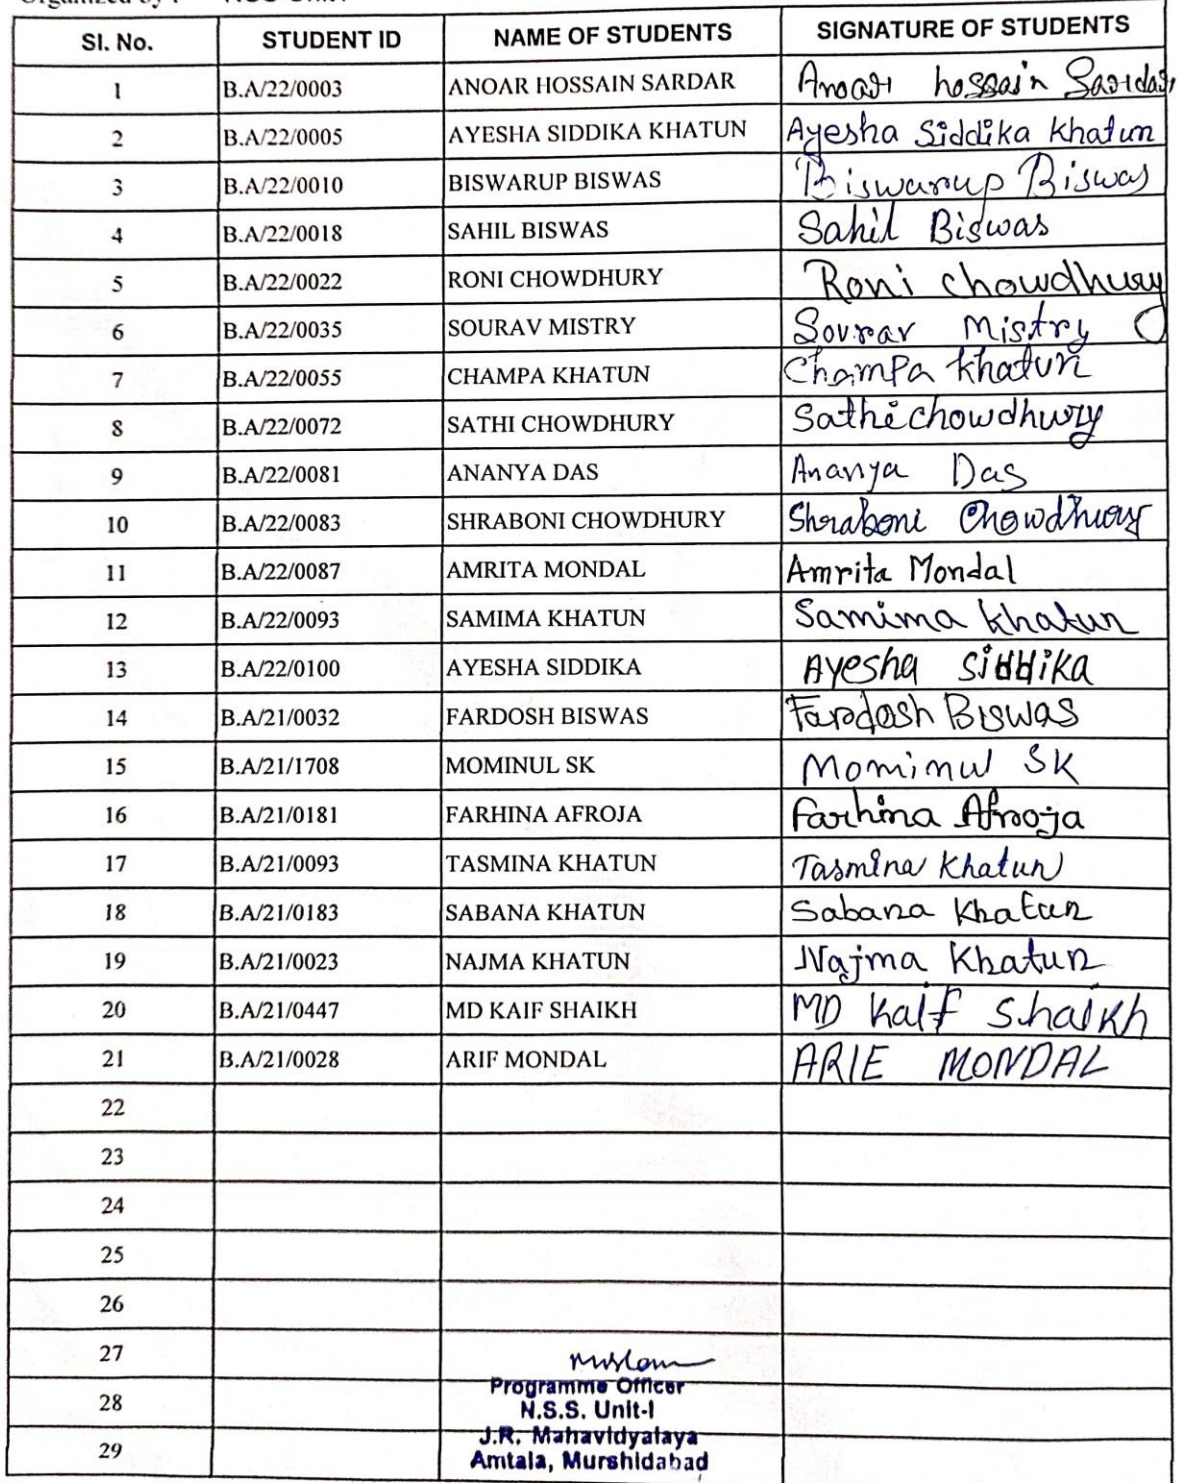 SI. No. STUDENT ID NAME OF STUDENTS SIGNATURE OF STUDENTS
1 B.A/22/0003 ANOAR HOSSAIN SARDAR Anoar hossain Sardar
2 B.A/22/0005 AYESHA SIDDIKA KHATUN Ayesha Siddika Khatun
3 B.A/22/0010 BISWARUP BISWAS Biswarup Biswas
4 B.A/22/0018 SAHIL BISWAS Sahil Biswas
5 B.A/22/0022 RONI CHOWDHURY Roni chowdhury
6 B.A/22/0035 SOURAV MISTRY Sourav Mistry
7 B.A/22/0055 CHAMPA KHATUN Champa Khatun
8 B.A/22/0072 SATHI CHOWDHURY Sathi chowdhury
9 B.A/22/0081 ANANYA DAS Ananya Das
10 B.A/22/0083 SHRABONI CHOWDHURY Shraboni Chowdhury
11 B.A/22/0087 AMRITA MONDAL Amrita Mondal
12 B.A/22/0093 SAMIMA KHATUN Samima Khatun
13 B.A/22/0100 AYESHA SIDDIKA Ayesha Siddika
14 B.A/21/0032 FARDOSH BISWAS Fardosh Biswas
15 B.A/21/1708 MOMINUL SK Mominul SK
16 B.A/21/0181 FARHINA AFROJA Farhina Afroja
17 B.A/21/0093 TASMINA KHATUN Tasmina Khatun
18 B.A/21/0183 SABANA KHATUN Sabana Khatun
19 B.A/21/0023 NAJMA KHATUN Najma Khatun
20 B.A/21/0447 MD KAIF SHAIKH MD Kaif Shaikh
21 B.A/21/0028 ARIF MONDAL ARIF MONDAL
22
23
24
25
26
27
Programme Officer
28 N.S.S. Unit-I
J.R. Mahavidyalaya
29 Amtala, Murshidabad